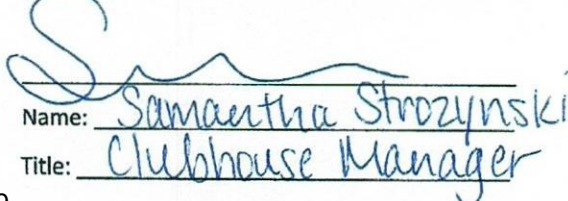 Name: Samantha Strozynski
Title: Clubhouse Manager